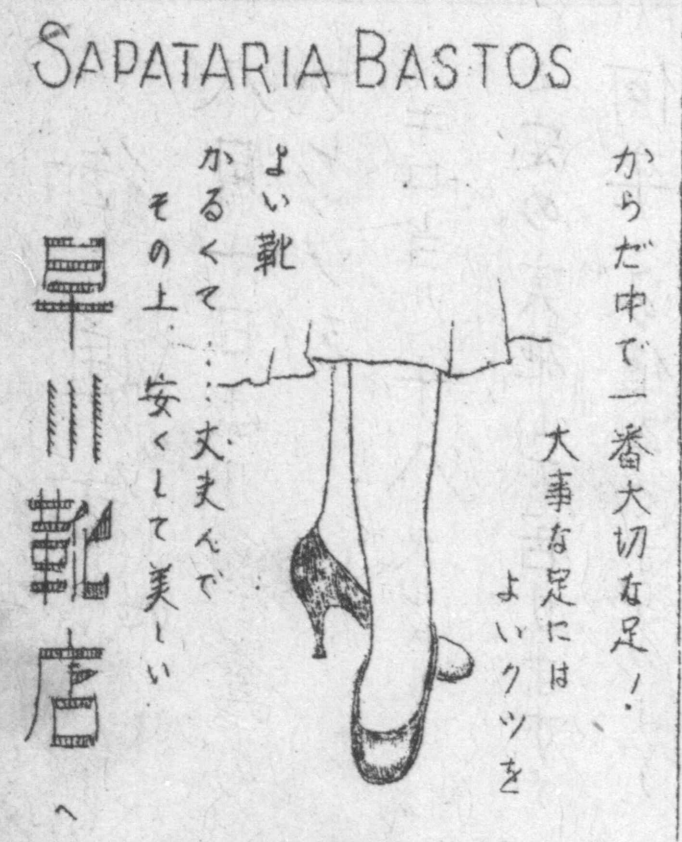 SAPATARIA BASTOS
からだ中で一番大切な足！
大事な足には
よいクツを
よい靴
かるくて……丈夫んで
その上.安くして美しい.
早川靴店へ